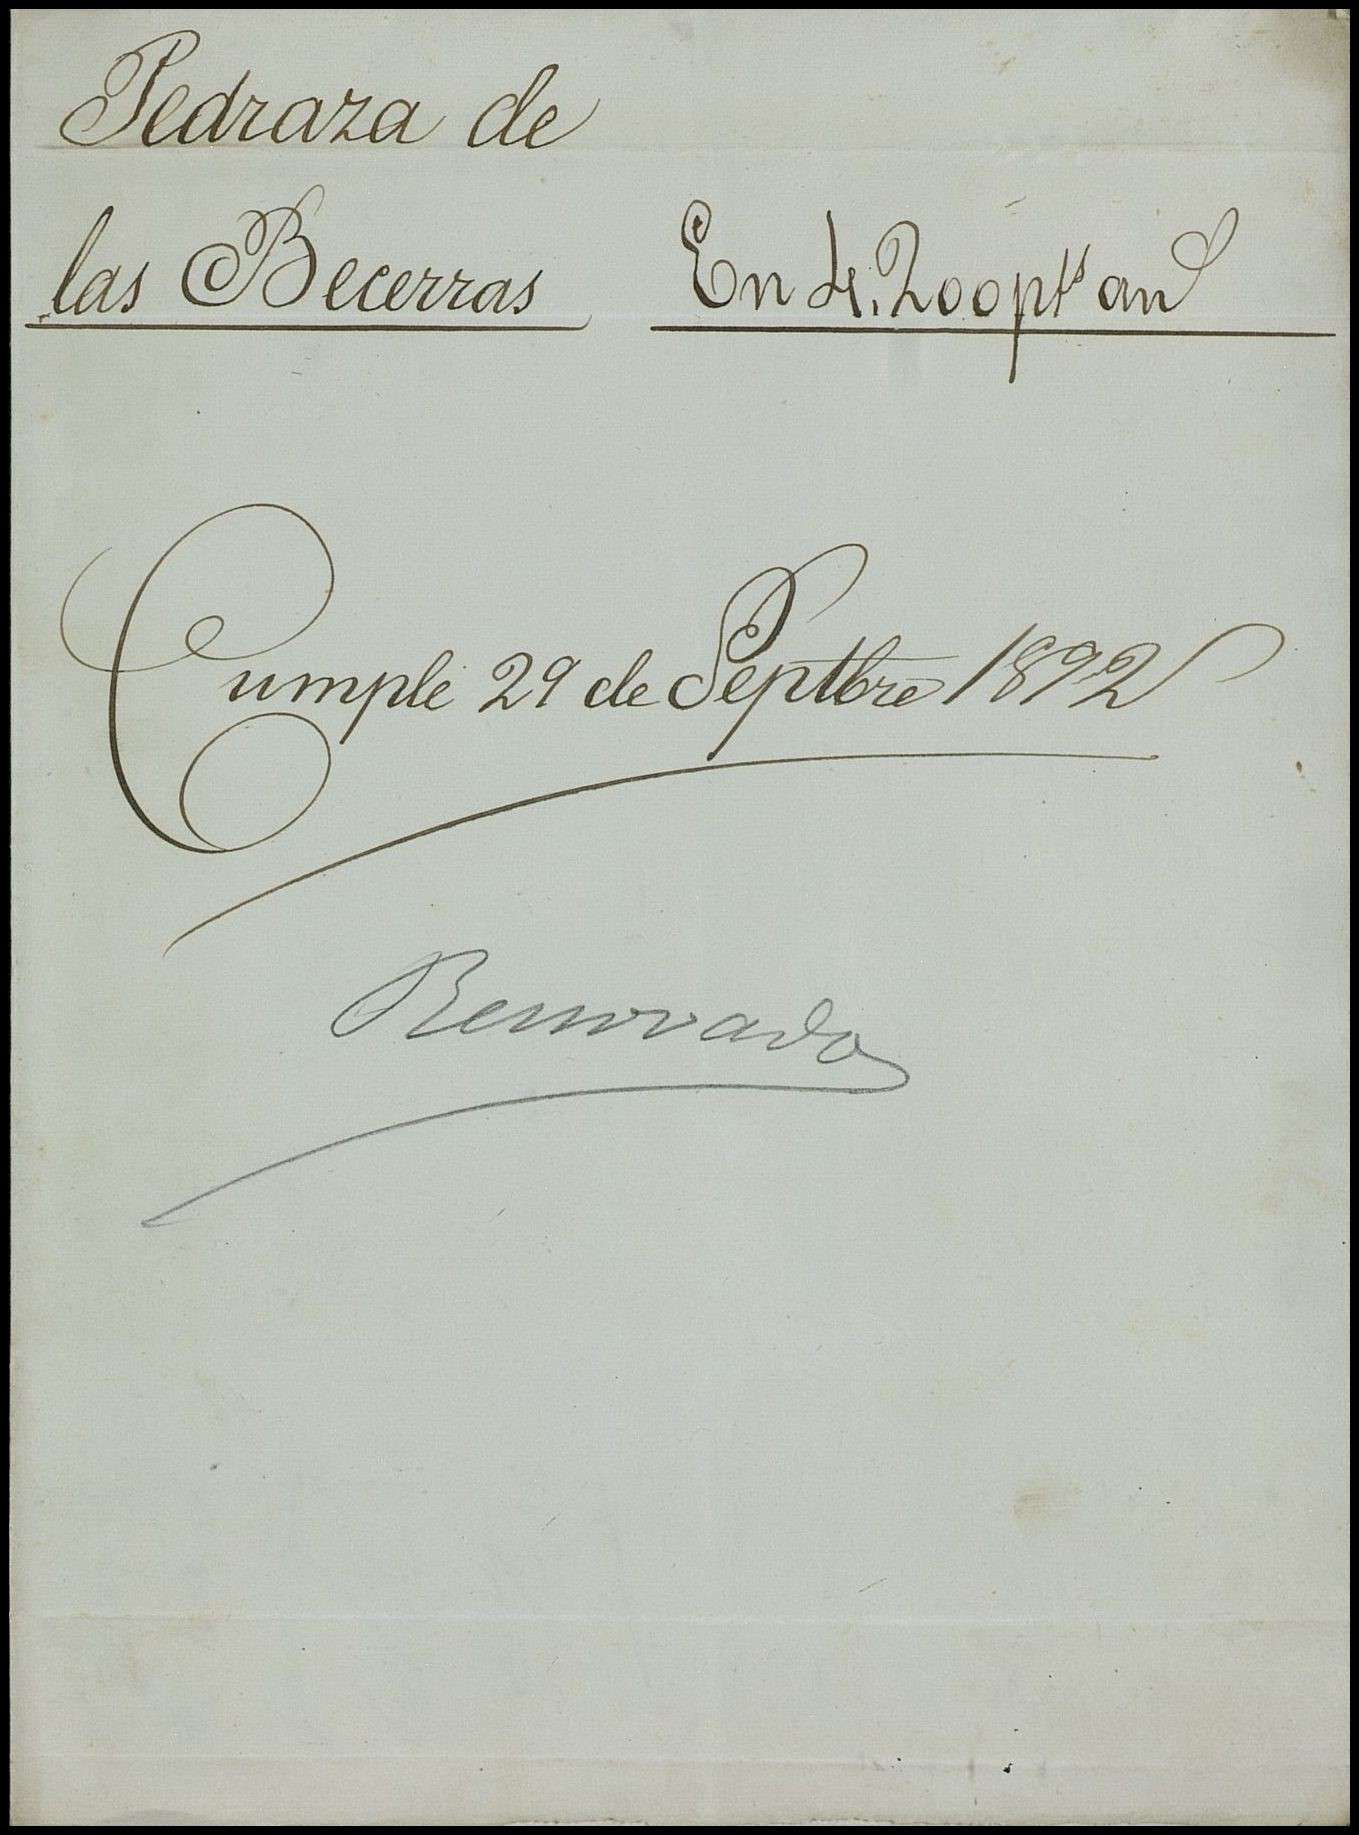 Pedraza de
las Becerras
En 4.200 pts an
Cumple 29 de Septbre 1892
Renovado